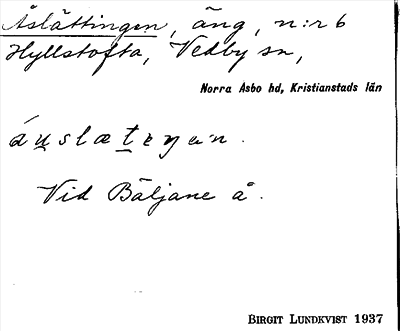 Åslättingen, äng, n:r 6
Hyllstofta, Vedby sn,
Norra Åsbo hd, Kristianstads län
áuslætɛŋan.
Vid Bäljane å.
BIRGIT LUNDKVIST 1937